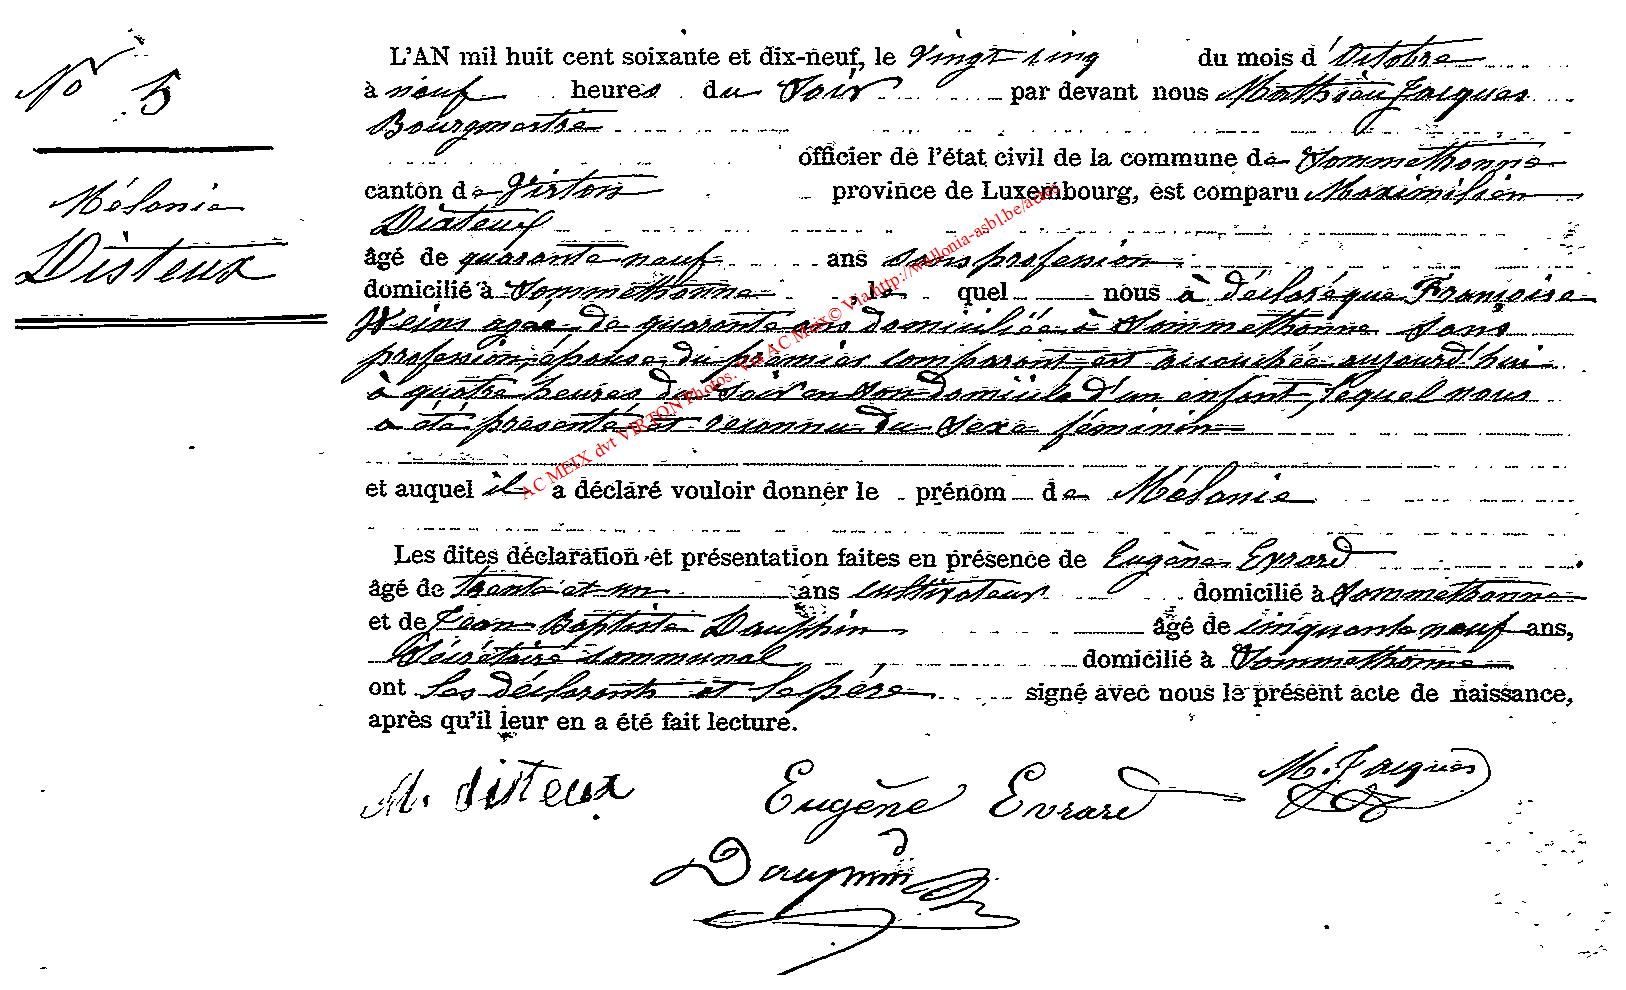 N° 5
Mélanie
Disteux
L'AN mil huit cent soixante et dix-neuf, le Vingt cinq du mois d'Octobre
à neuf heures du Soir par devant nous Mathieu Jacques
Bourgmestre
officier de l'état civil de la commune de Sommethonne
canton de Virton province de Luxembourg, est comparu Maximilien
Disteux
âgé de quarante neuf ans sans profession
domicilié à Sommethonne le quel nous à déclaré que Françoise
Weins agée de quarante ans domiciliée à Sommethonne sans
profession, épouse du premier comparant, est accouchée aujourd'hui
à quatre heures du soir en son domicile d'un enfant, lequel nous
a été présenté et reconnu du sexe féminin
et auquel il a déclaré vouloir donner le prénom de Mélanie
Les dites déclaration et présentation faites en présence de Eugène Evrard
âgé de trente et un ans cultivateur domicilié à Sommethonne
et de Jean Baptiste Dauphin âgé de cinquante neuf ans,
Sécrétaire communal domicilié à Sommethonne
ont les déclarants et le père signé avec nous le présent acte de naissance,
après qu'il leur en a été fait lecture.
M. disteux Eugène Evrard M. Jacques
Dauphin
AC MEIX dvt VIRTON Photos. Via AC Meix © Via http://wallonia-asbl.be/actes